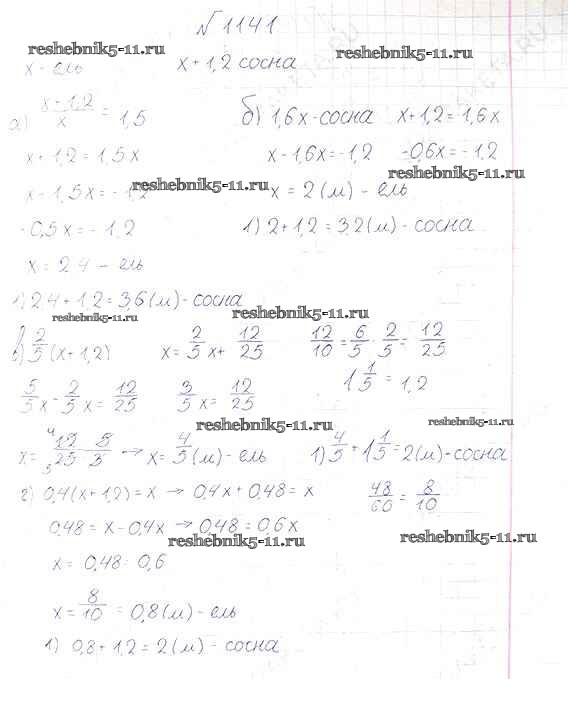 №1141
reshebnik5-11.ru
reshebnik5-11.ru
x - ель x + 1,2 сосна
а) x + 1,2 / x = 1,5 б) 1,6x - сосна x + 1,2 = 1,6x
x + 1,2 = 1,5x x - 1,6x = -1,2 -0,6x = -1,2
reshebnik5-11.ru
reshebnik5-11.ru
x - 1,5x = -1,2 x = 2 (м) - ель
-0,5x = -1,2 1) 2 + 1,2 = 3,2 (м) - сосна
x = 2,4 - ель
1) 2,4 + 1,2 = 3,6 (м) - сосна
reshebnik5-11.ru
reshebnik5-11.ru
в) 2/5 (x + 1,2) x = 2/5 x + 12/25 12/10 = 6/5 · 2/5 = 12/25
1 1/5 = 1,2
5/5 x - 2/5 x = 12/25 3/5 x = 12/25
reshebnik5-11.ru
reshebnik5-11.ru
x = 12/25 5/3 → x = 4/5 (м) - ель 1) 4/5 + 1 1/5 = 2 (м) - сосна
г) 0,4(x + 1,2) = x → 0,4x + 0,48 = x 48/60 = 8/10
0,48 = x - 0,4x → 0,48 = 0,6x
reshebnik5-11.ru
reshebnik5-11.ru
x = 0,48 : 0,6
x = 8/10 = 0,8 (м) - ель
1) 0,8 + 1,2 = 2 (м) - сосна